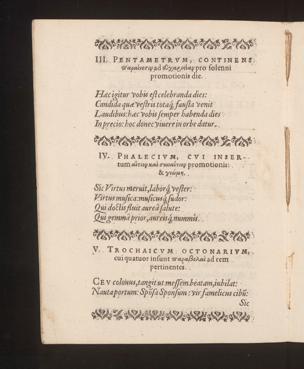 III. PENTAMETRVM, CONTINENS
pro solenni
promotionis die.
Hæc igitur vobis est celebranda dies:
Candida quæ vestris totaq́; fausta venit
Laudibus: hæc vobis semper habenda dies
In precio: hoc donec viuere in orbe datur.
IV. PHALECIVM, CVI INSER-
tum promotionis:
& γνώμη.
Sic Virtus meruit, laborq́; vester:
Virtus musica: musicusq́; sudor:
Qui doctis fluit aureâ salute:
Qui gemmâ prior, aureisq́; nummis.
V. TROCHAICVM OCTONARIVM,
cui quatuor insunt ad rem
pertinentes.
CEV colonus, tangit ut messem beatam, jubilat:
Nauta portum: Spōsa Sponsum: vir famelicus cibū:
Sic